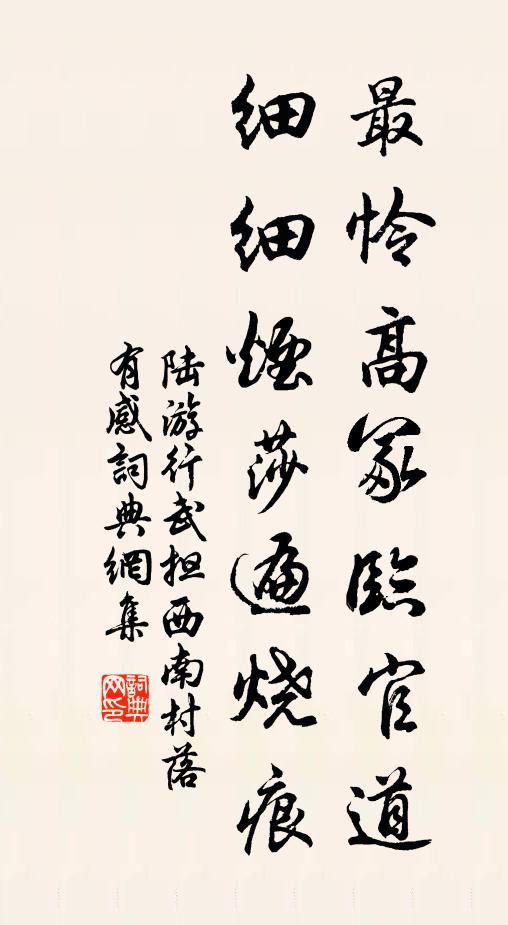 最怜高冢臨官道
细细煙莎遍烧痕
陆游行武担西南村落
有感詞典網集
詞典网印